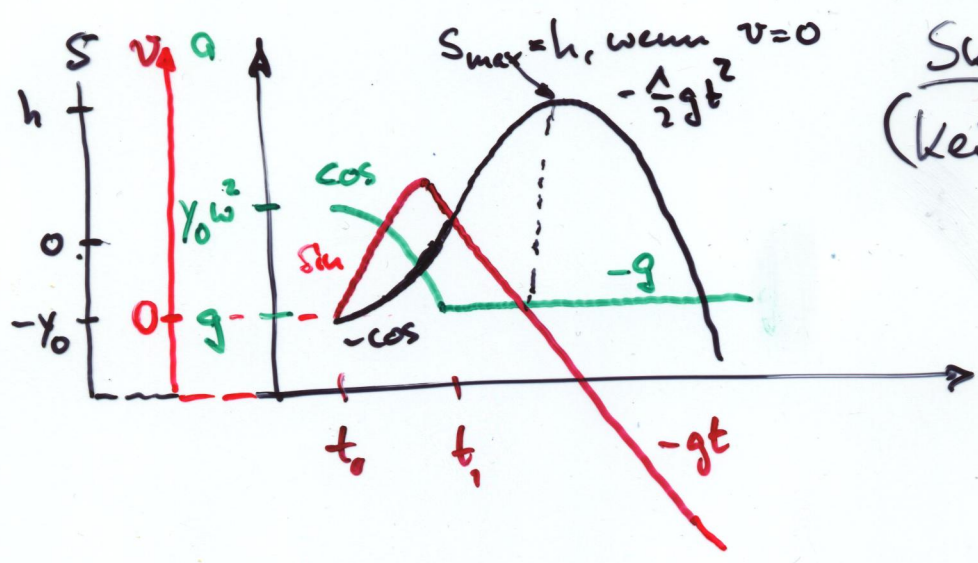 S v a
S_max = h, wenn v=0
-½gt²
h
cos
y₀ω²
0
sin
-g
-y₀
0
g
-cos
t₀
t₁
-gt